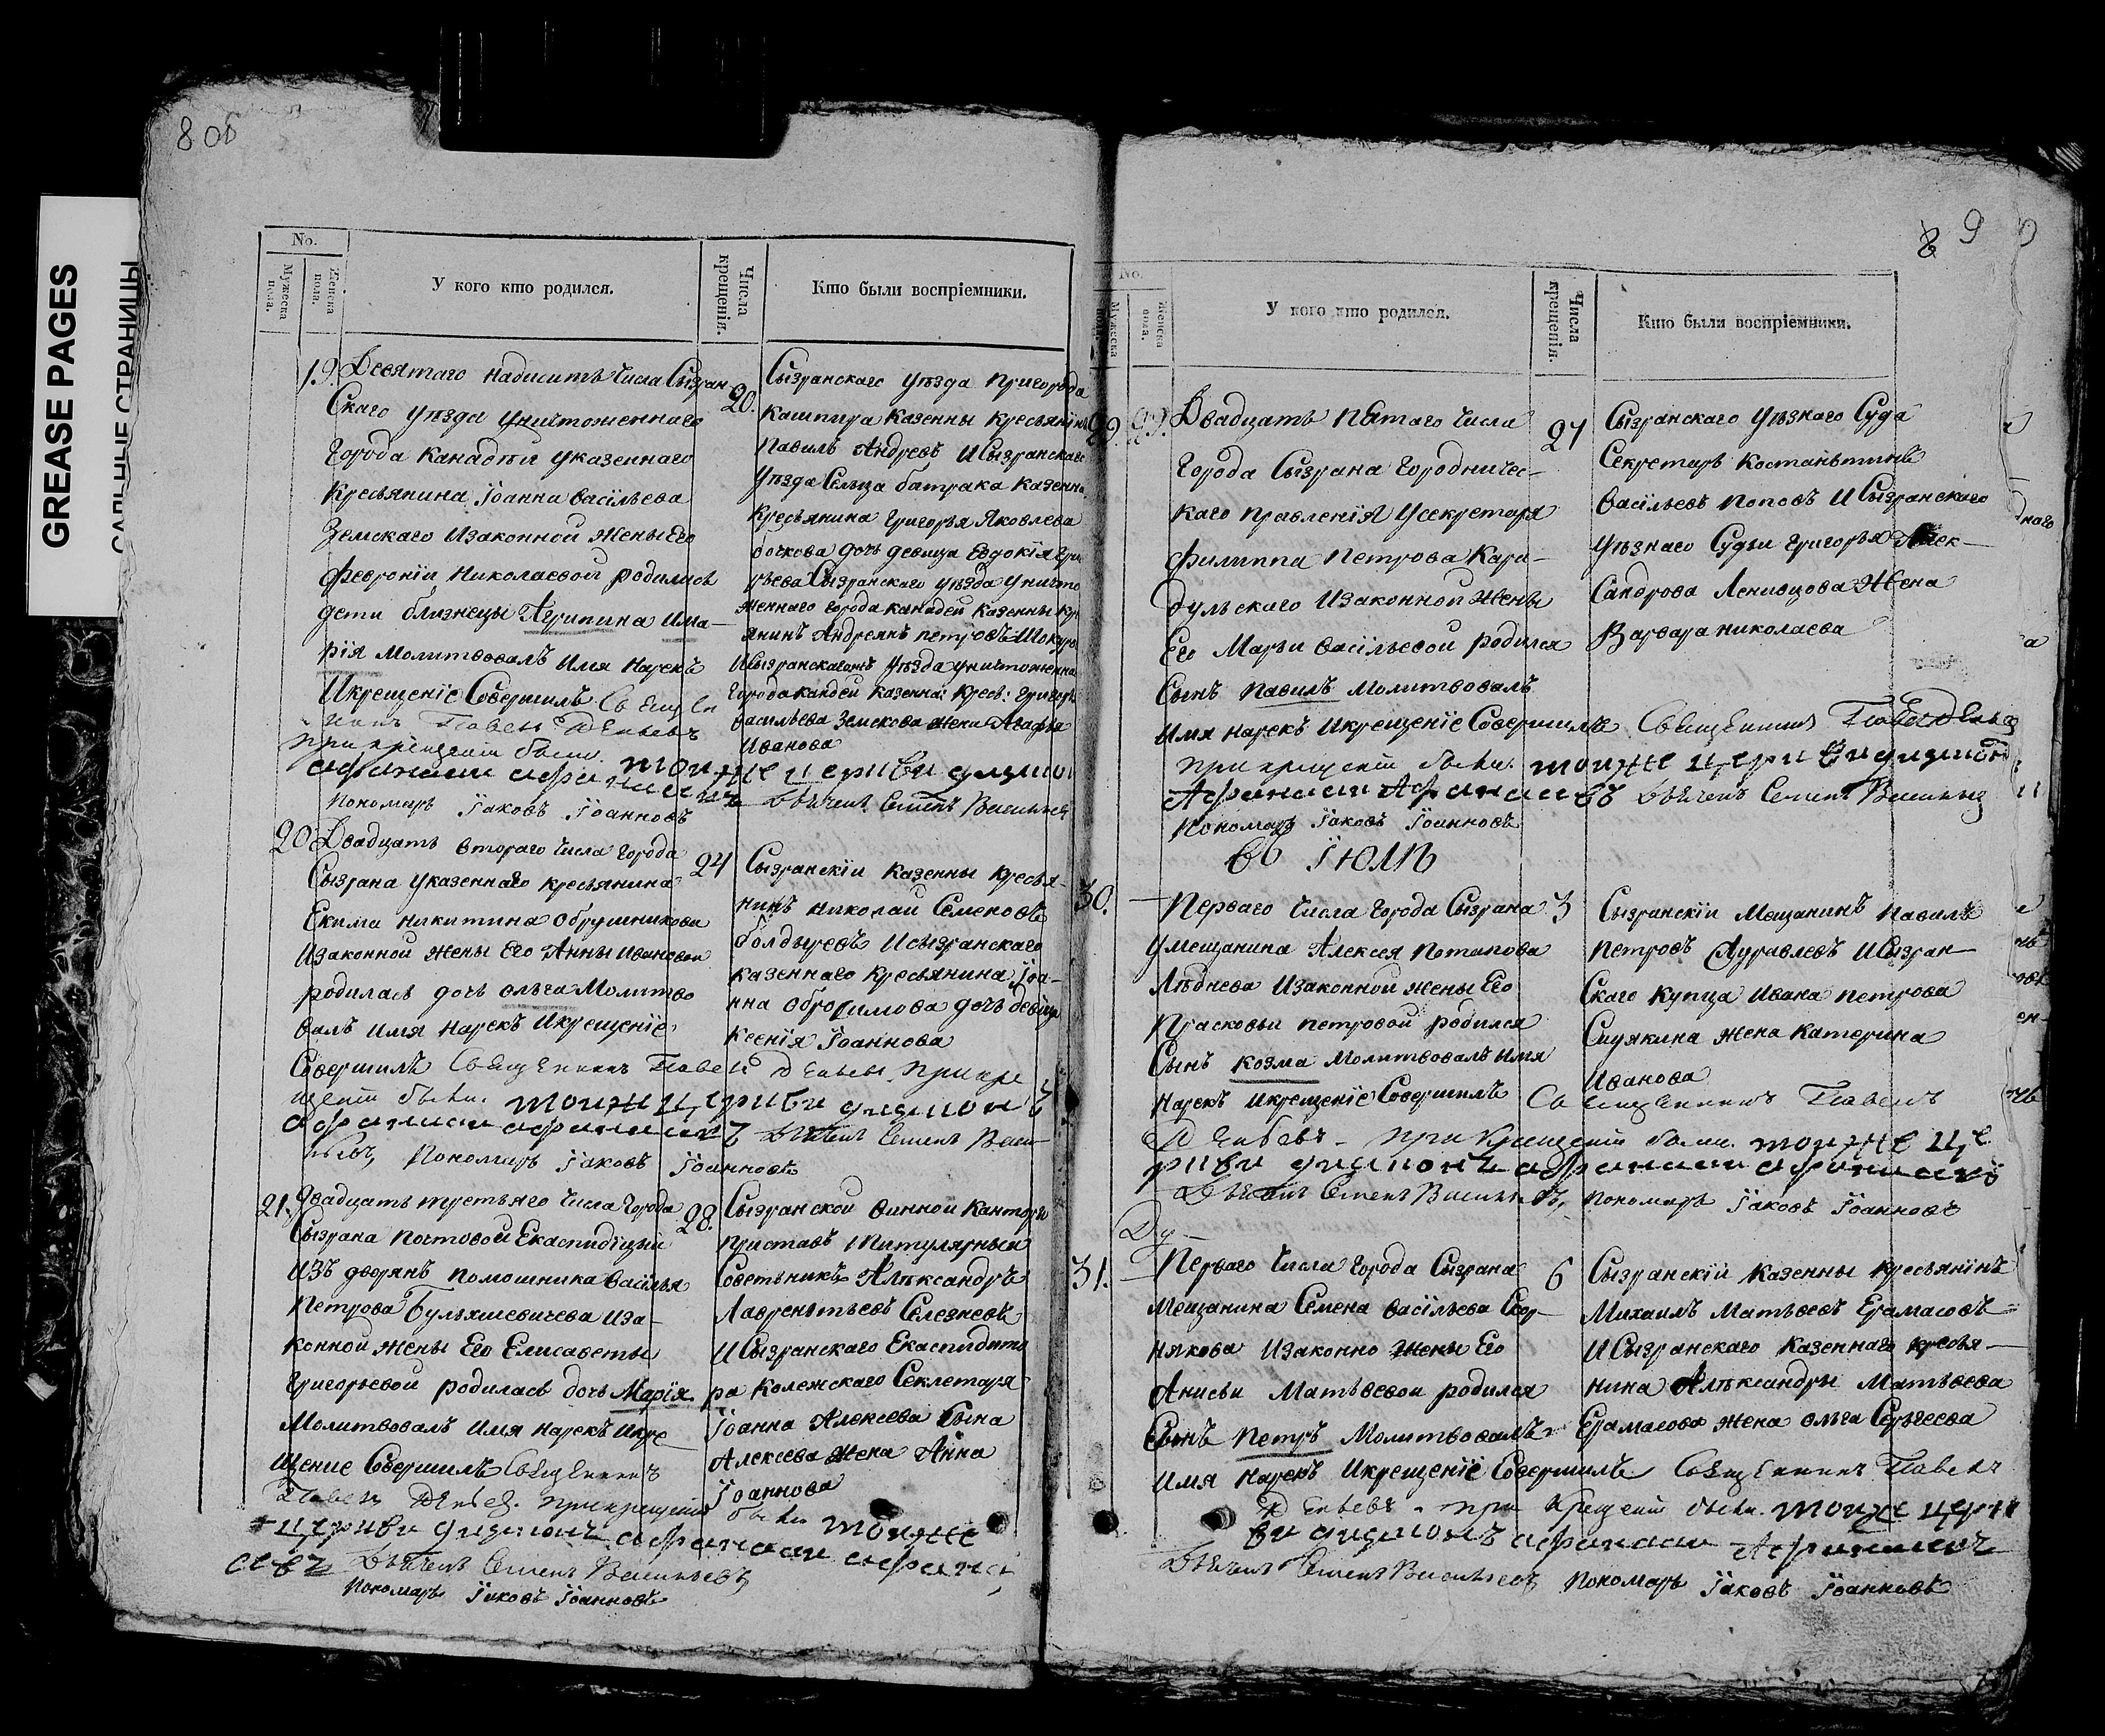 8 об
GREASE PAGES
САЛЬНЫЕ СТРАНИЦЫ
No.
Мужеска пола.
Женска пола.
У кого кто родился.
Числа крещенія.
Кто были воспріемники.
19. Девятаго надцять числа Сызран
Скаго уѣзда уничтоженнаго
города Канадѣи указеннаго
Кресьянина Іоанна Васільева
Земскаго Изаконной Жены Его
Февроніи Николаевой родились
дети близнецы Агрипина Има-
рія Молитвовалъ Имя Нарекъ
Икрещеніе Совершилъ Священ
никъ Павелъ
при крещеніи были. тойже церкви диакон
афанасии афанасиевъ Дьячекъ Семенъ Васильев
Пономарь Іаковъ Іоанновъ
20.
Сызранскаго уѣзда пригорода
Кашпира Казенны Кресьянинъ
Павилъ Андреевъ ИСызранскаго
уѣзда Сельца батрака Казенна
Кресьянина григорья Яковлева
бочкова дочь девица Евдокія Гри
рьева Сызранскаго уѣзда уничто
женнаго города канадеи Казенны Кре
янинъ Андреянъ петровъ
ИСызранскагожъ уѣзда уничтоженна
города кандеи казенна: Кресь: григорь
Васильева Земскова жена Агафья
Иванова
20 Двадцать втораго числа города
Сызрана указеннаго кресьянина
Екима никитина Обрушникова
Изаконной жены Его Анны Ивановой
родилась дочь ольга Молитво
валъ имя нарекъ Икрещеніе
Совершилъ Священникъ Павелъ при кре
щеніи были. тойже церкви диакон
афанасии афанасиевъ Дьячекъ Семенъ Васи
льевъ, Пономарь Іаковъ Іоанновъ
24
Сызранскіи Казенны Кресья-
нинъ Николаи Семеновъ
болдыревъ Исызранскаго
казеннаго кресьянина Іоа-
нна Обросимова дочь девица
Ксенія Іоаннова
21. Двадцать третьяго числа города
Сызрана Почтовой Екаспидіціи
Изъ дворянъ помошника Васілья
Петрова Иза-
конной жены Его Елисаветы
Григорьевой родилась дочь Марія
Молитвовалъ Имя Нарекъ Икре
щение Совершилъ Священникъ
Павелъ при крещеніи были тойже
церкви диаконъ афанасии афана
сиевъ Дьячекъ Семенъ Васильевъ,
Пономарь Іаковъ Іоанновъ
28.
Сызранской Винной Канторы
приставъ титулярный
Советникъ Алѣксандръ
Лаврентьевъ Селезневъ
ИСызранскаго Екаспидито
ра Колежскаго Секлетаря
Іоанна Алексеева Сына
Алексеева Жена Анна
Іоаннова
8 9
No.
Мужеска пола.
Женска пола.
У кого кто родился.
Числа крещенія.
Кто были воспріемники.
29. Двадцать пятаго числа
города Сызрана городничес-
каго правленія Усекретаря
Филиппа Петрова Кара-
дульскаго Изаконной Жены
Его Марьи Васільевой родился
Сынъ Павилъ Молитвовалъ
Имя нарекъ Икрещеніе Совершилъ Священникъ
при крещеніи были. тойже церкви диакон
Афанасии Афанасиевъ Дьячекъ Семенъ Васильев
Пономарь Іаковъ Іоанновъ
27
Сызранскаго Уѣзнаго Суда
Секретарь Костаньтинъ
Васільевъ Поповъ ИСызранскаго
уѣзнаго Судьи григорья Алек-
Сандрова Ленивцова Жена
Варвара Николаева
Въ ІЮЛѢ
30. Перваго числа города Сызрана
умещанина Алексея Потапова
Лѣднева Изаконной жены Его
Прасковьи петровой родился
Сынъ Козма Молитвовалъ имя
Нарекъ Икрещеніе Совершилъ Священникъ Павелъ
при крещеніи были. тойже це
ркви диаконъ афанасии афанасиевъ
Дьячекъ Семенъ Васильевъ, Пономарь Іаковъ Іоанновъ
3
Сызранскіи Мещанинъ Павилъ
петровъ Журавлевъ ИСызран-
Скаго Купца Ивана Петрова
Сидякина жена Катерина
Иванова
31. Перваго числа города Сызрана
Мещанина Семена Васільева
Изаконно Жены Его
Анисьи Матьвевои родился
Сынъ Петръ Молитвовалъ
Имя Нарекъ Икрещеніе Совершилъ Священникъ Павелъ
при крещеніи были. тойже церк
ви диаконъ афанасии Афанасиевъ
Дьячекъ Семенъ Васильевъ, Пономарь Іаковъ Іоанновъ
6
Сызранскій Казенны Кресьянінъ
Михаилъ Матьвевъ Ерамасовъ
ИСызранскаго Казеннаго кресья-
нина Алѣксандры Матьвева
Ерамасова жена ольга Сергеева